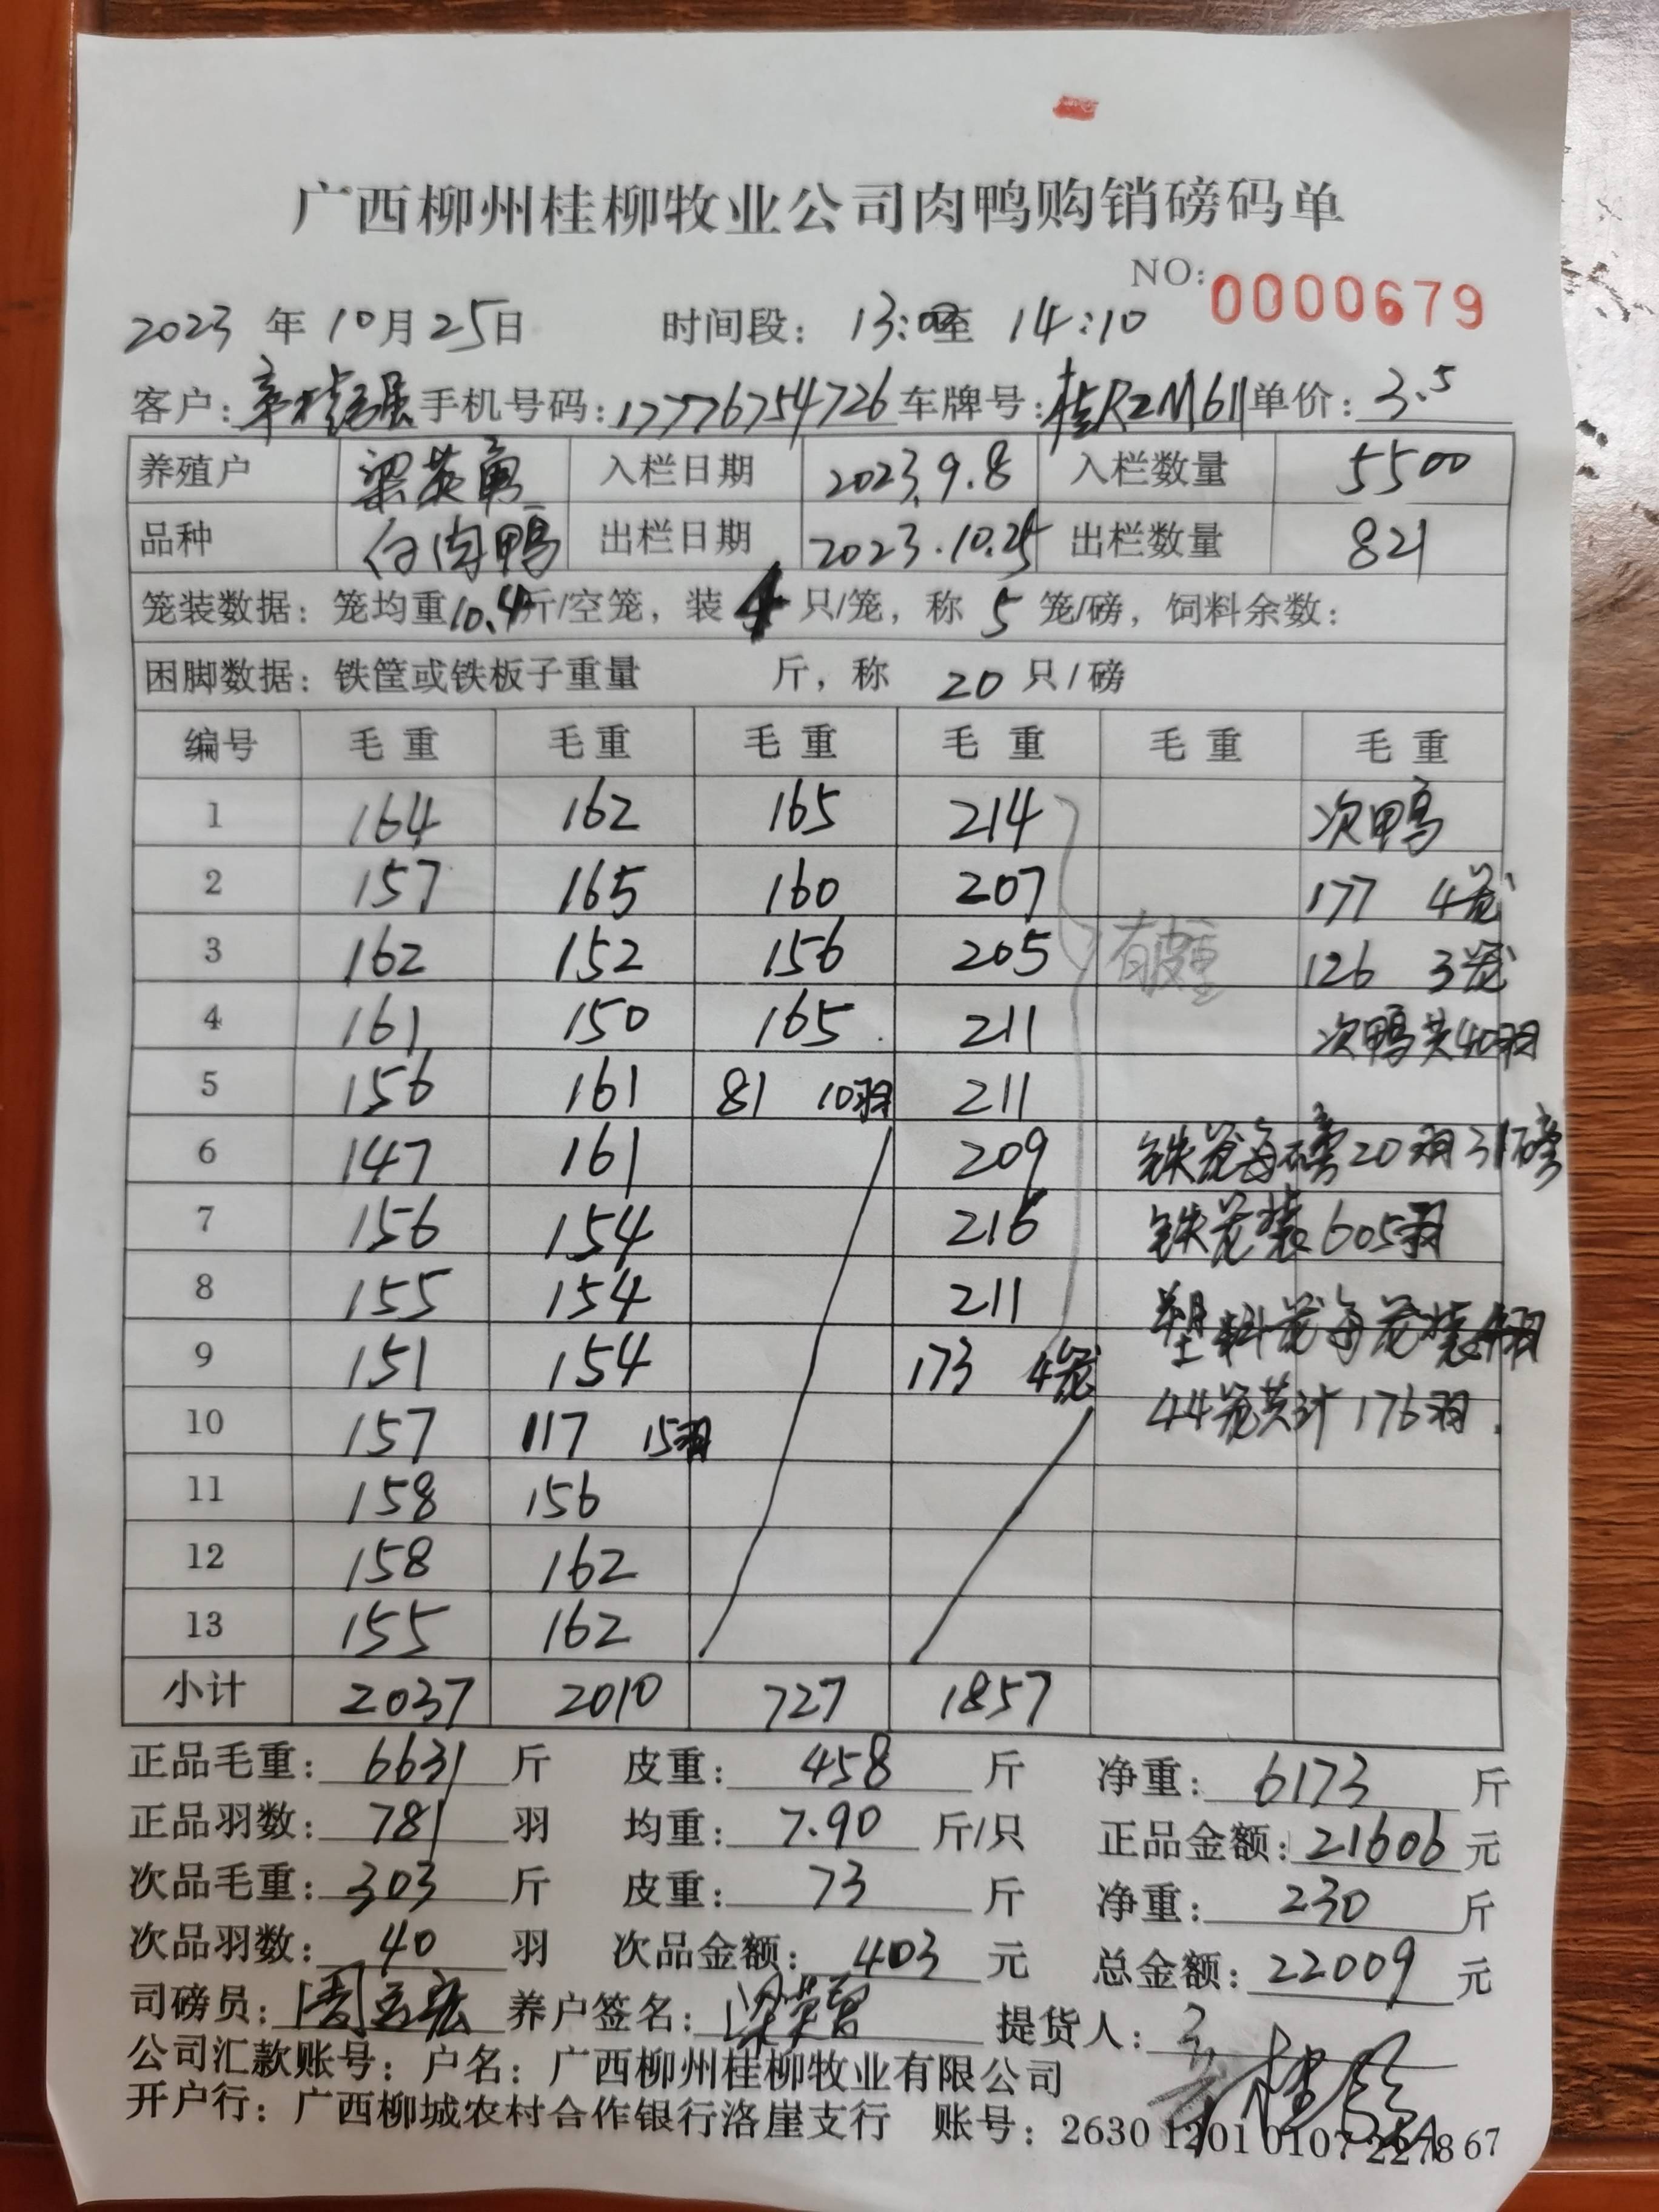 广西柳州桂柳牧业公司肉鸭购销磅码单
NO: 0000679
2023 年 10 月 25 日 时间段: 13:00 至 14:10
客户: 手机号码: 17776754726 车牌号: 桂R2M611 单价: 3.5
养殖户 入栏日期 2023.9.8 入栏数量 5500
品种 白肉鸭 出栏日期 2023.10.25 出栏数量 821
笼装数据: 笼均重 10.4 斤/空笼, 装 4 只/笼, 称 5 笼/磅, 饲料余数:
困脚数据: 铁筐或铁板子重量 斤, 称 20 只/磅
编号 毛重 毛重 毛重 毛重 毛重 毛重
1 164 162 165 214 次鸭
2 157 165 160 207 177 4笼
3 162 152 156 205 有皮重 126 3笼
4 161 150 165 211 次鸭共40羽
5 156 161 81 10羽 211
6 147 161 209 铁笼每磅20羽31磅
7 156 154 216 铁笼装605羽
8 155 154 211 塑料笼每笼装4羽
9 151 154 173 4笼
10 157 117 15羽 44笼共计176羽.
11 158 156
12 158 162
13 155 162
小计 2037 2010 727 1857
正品毛重: 6631 斤 皮重: 458 斤 净重: 6173 斤
正品羽数: 781 羽 均重: 7.90 斤/只 正品金额: 21606 元
次品毛重: 303 斤 皮重: 73 斤 净重: 230 斤
次品羽数: 40 羽 次品金额: 403 元 总金额: 22009 元
司磅员: 养户签名: 提货人:
公司汇款账号: 户名: 广西柳州桂柳牧业有限公司
开户行: 广西柳城农村合作银行洛崖支行 账号: 2630 1201 0107 2278 67